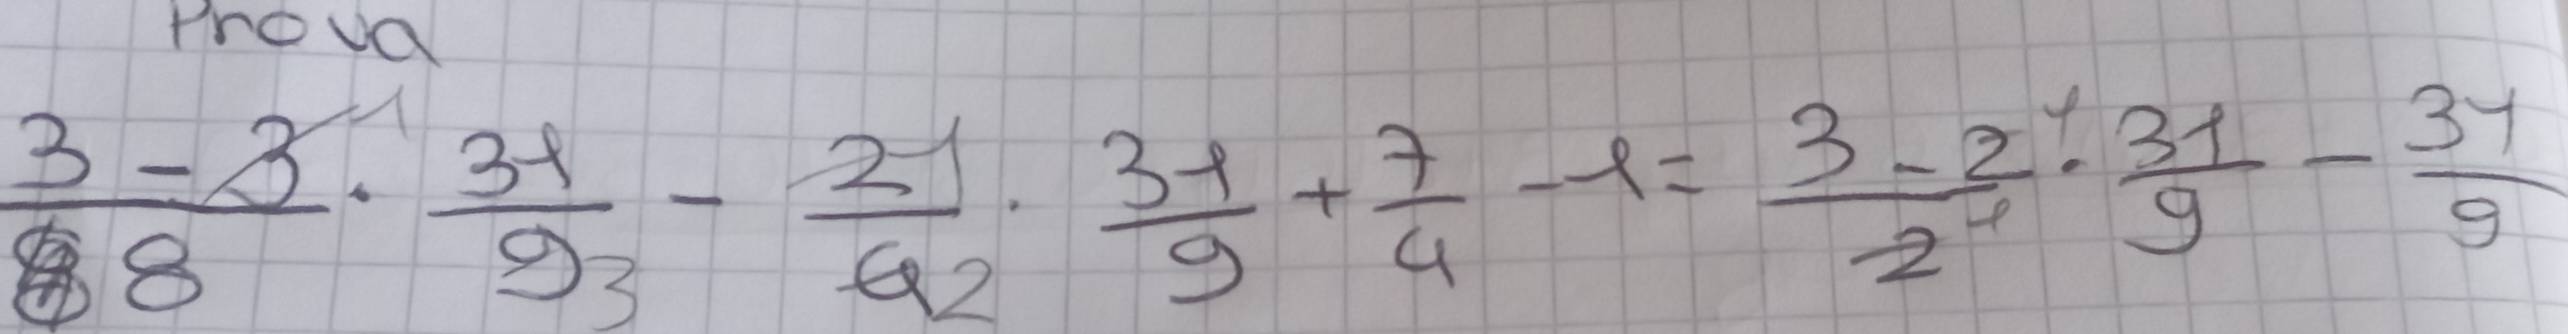 Prova
3 - 3 1 / 8 · 31 / 9 3 - 2 1 / 4 2 · 31 / 9 + 7 / 4 - 1 = 3 - 2 1 / 2 1 · 31 / 9 - 31 / 9